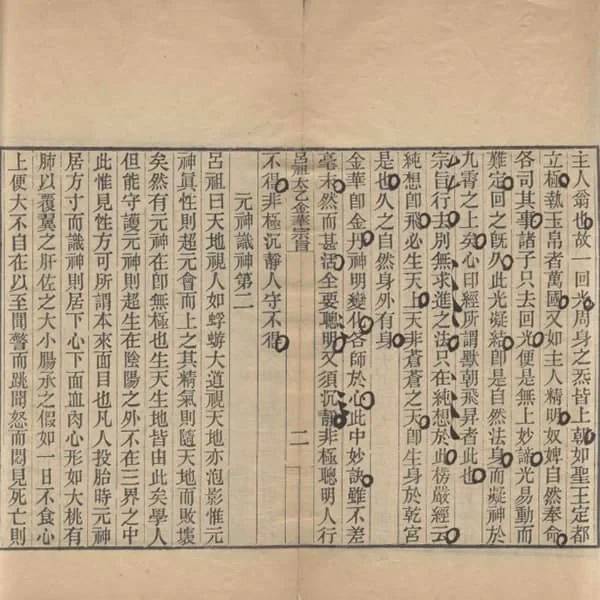 主人翁也故一回光周身之炁皆上朝如聖王定都
立極執玉帛者萬國又如主人精明奴婢自然奉命
各司其事諸子只去回光便是無上妙諦光易動而
難定回之既久此光凝結卽是自然法身而凝神於
九霄之上矣心印經所謂默朝飛昇者此也
宗旨行去別無求進之法只在純想於此楞嚴經云
純想卽飛必生天上天非蒼蒼之天卽生身於乾宮
是也久之自然身外有身
金華卽金丹神明變化各師於心此中妙訣雖不差
毫末然而甚活全要聰明又須沉靜非極聰明人行
不得非極沉靜人守不得
呂祖太乙金華宗旨
二
元神識神第二
呂祖曰天地視人如蜉蝣大道視天地亦泡影惟元
神眞性則超元會而上之其精氣則隨天地而敗壞
矣然有元神在卽無極也生天生地皆由此矣學人
但能守護元神則超生在陰陽之外不在三界之中
此惟見性方可所謂本來面目也凡人投胎時元神
居方寸而識神則居下心下面血肉心形如大桃有
肺以覆翼之肝佐之大小腸承之假如一日不食心
上便大不自在以至聞驚而跳聞怒而悶見死亡則